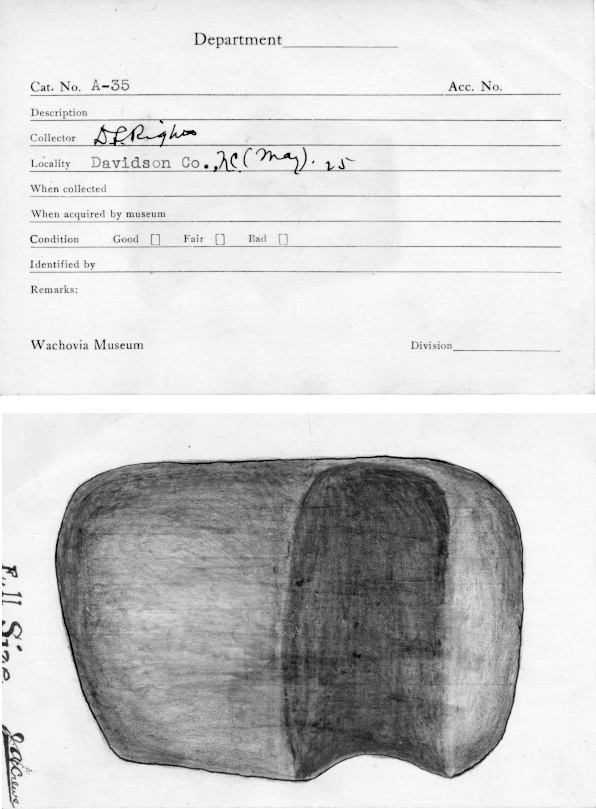 Department
Cat. No. A-35 Acc. No.
Description
Collector D L Rights
Locality Davidson Co., N.C. (May). 25
When collected
When acquired by museum
Condition Good [] Fair [] Bad []
Identified by
Remarks:
Wachovia Museum Division
Full Size